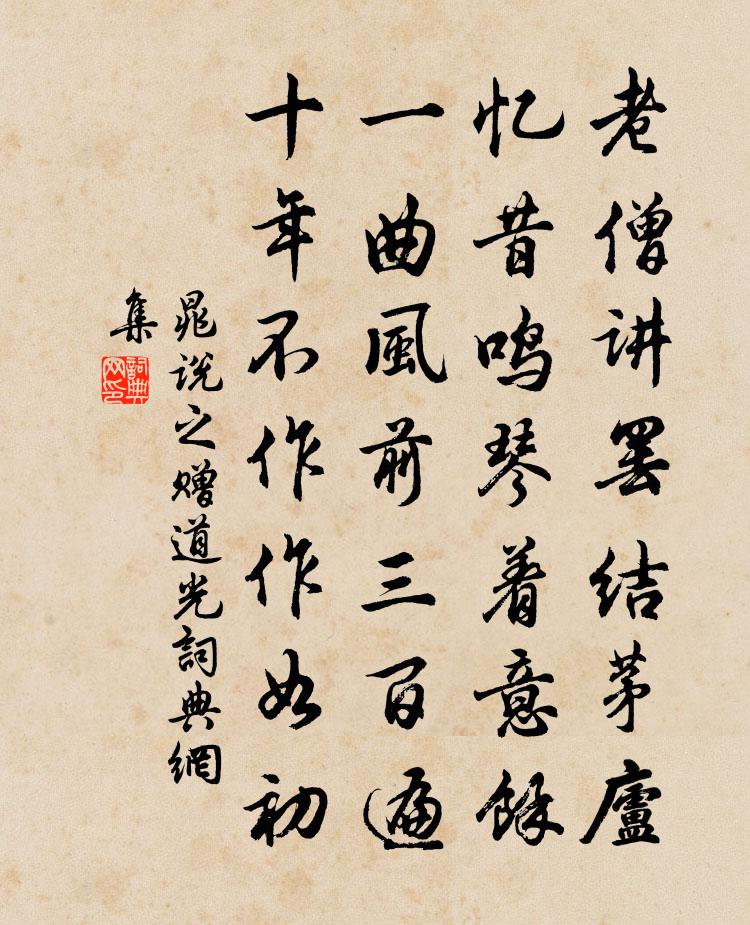 老僧讲罢结茅廬
忆昔鸣琴着意餘
一曲風前三百遍
十年不作作如初
晁说之赠道光詞典網
集
詞典
网印